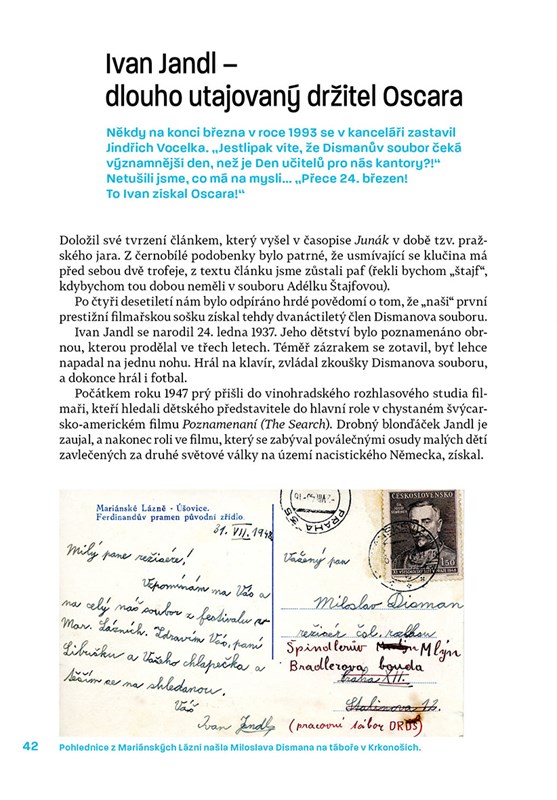 Ivan Jandl –
dlouho utajovaný držitel Oscara
Někdy na konci března v roce 1993 se v kanceláři zastavil
Jindřich Vocelka. „Jestlipak víte, že Dismanův soubor čeká
významnější den, než je Den učitelů pro nás kantory?!“
Netušili jsme, co má na mysli... „Přece 24. březen!
To Ivan získal Oscara!“
Doložil své tvrzení článkem, který vyšel v časopise Junák v době tzv. praž-
ského jara. Z černobílé podobenky bylo patrné, že usmívající se klučina má
před sebou dvě trofeje, z textu článku jsme zůstali paf (řekli bychom „štajf“,
kdybychom tou dobou neměli v souboru Adélku Štajfovou).
Po čtyři desetiletí nám bylo odpíráno hrdé povědomí o tom, že „naši“ první
prestižní filmařskou sošku získal tehdy dvanáctiletý člen Dismanova souboru.
Ivan Jandl se narodil 24. ledna 1937. Jeho dětství bylo poznamenáno obr-
nou, kterou prodělal ve třech letech. Téměř zázrakem se zotavil, byť lehce
napadal na jednu nohu. Hrál na klavír, zvládal zkoušky Dismanova souboru,
a dokonce hrál i fotbal.
Počátkem roku 1947 prý přišli do vinohradského rozhlasového studia fil-
maři, kteří hledali dětského představitele do hlavní role v chystaném švýcar-
sko-americkém filmu Poznamenaní (The Search). Drobný blonďáček Jandl je
zaujal, a nakonec roli ve filmu, který se zabýval poválečnými osudy malých dětí
zavlečených za druhé světové války na území nacistického Německa, získal.
Mariánské Lázně - Úšovice.
Ferdinandův pramen původní zřídlo.
31. VII. 1948
Milý pane režisére!
Vzpomínám na Vás a
na celý náš soubor z festivalu v
Mar. Lázních. Zdravím Vás, paní
Libušku a Vašeho chlapečka a
těším se na shledanou.
Váš
Ivan Jandl
PRAHA 35
ČESKOSLOVENSKO
1.50
Vážený pan
Miloslav Disman
režisér čsl. rozhlasu
Špindlerův Mlýn
Bradlerova bouda
Praha XII.
Stalinova 12.
(pracovní tábor DRDS)
42
Pohlednice z Mariánských Lázní našla Miloslava Dismana na táboře v Krkonoších.